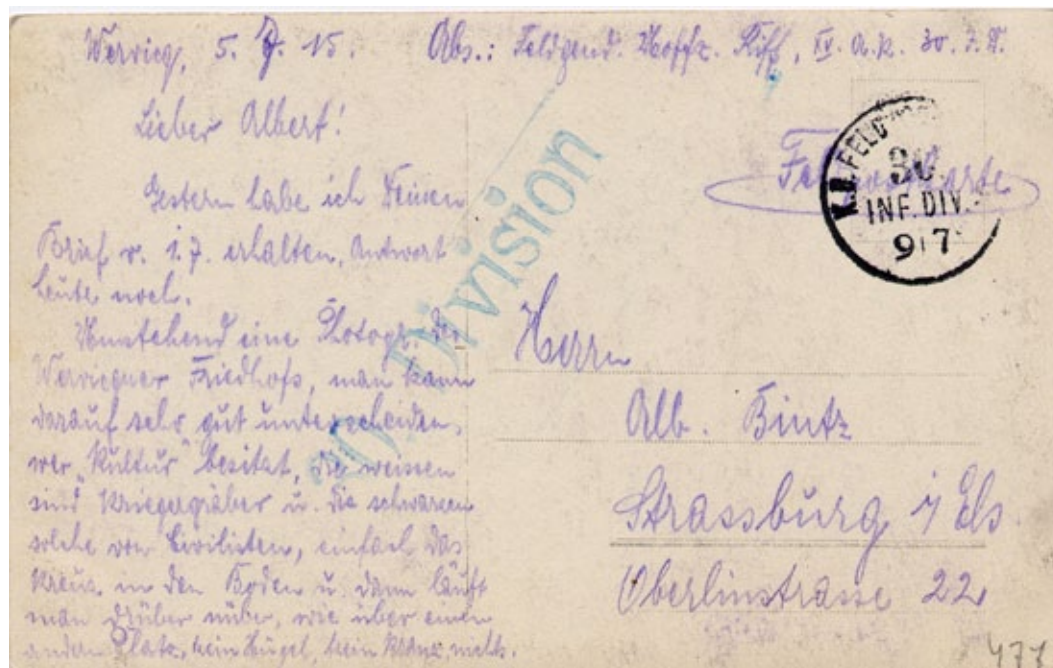 Wervicq, 5. 7. 15. Abs.: Feldgend. Uoffz. Riff, XV. A.K. 30. I.D.
Lieber Albert!
Gestern habe ich Deinen
Brief v. 1.7. erhalten, Antwort
heute noch.
Umstehend eine Photogr. des
Wervicquer Friedhofs, man kann
darauf sehr gut unterscheiden,
wer „Kultur" besitzt, die weissen
sind Kriegergräber u. die schwarzen
solche von Civilisten, einfach das
Kreuz in den Boden u. dann läuft
man drüber nüber, wie über einen
andern Platz, kein Hügel, kein Kranz, nichts.
Feldpostkarte
K.D. FELD
30.
INF. DIV.
9 7
30. Division
Herrn
Alb. Bintz
Strassburg i/Els
Oberlinstrasse 22
477